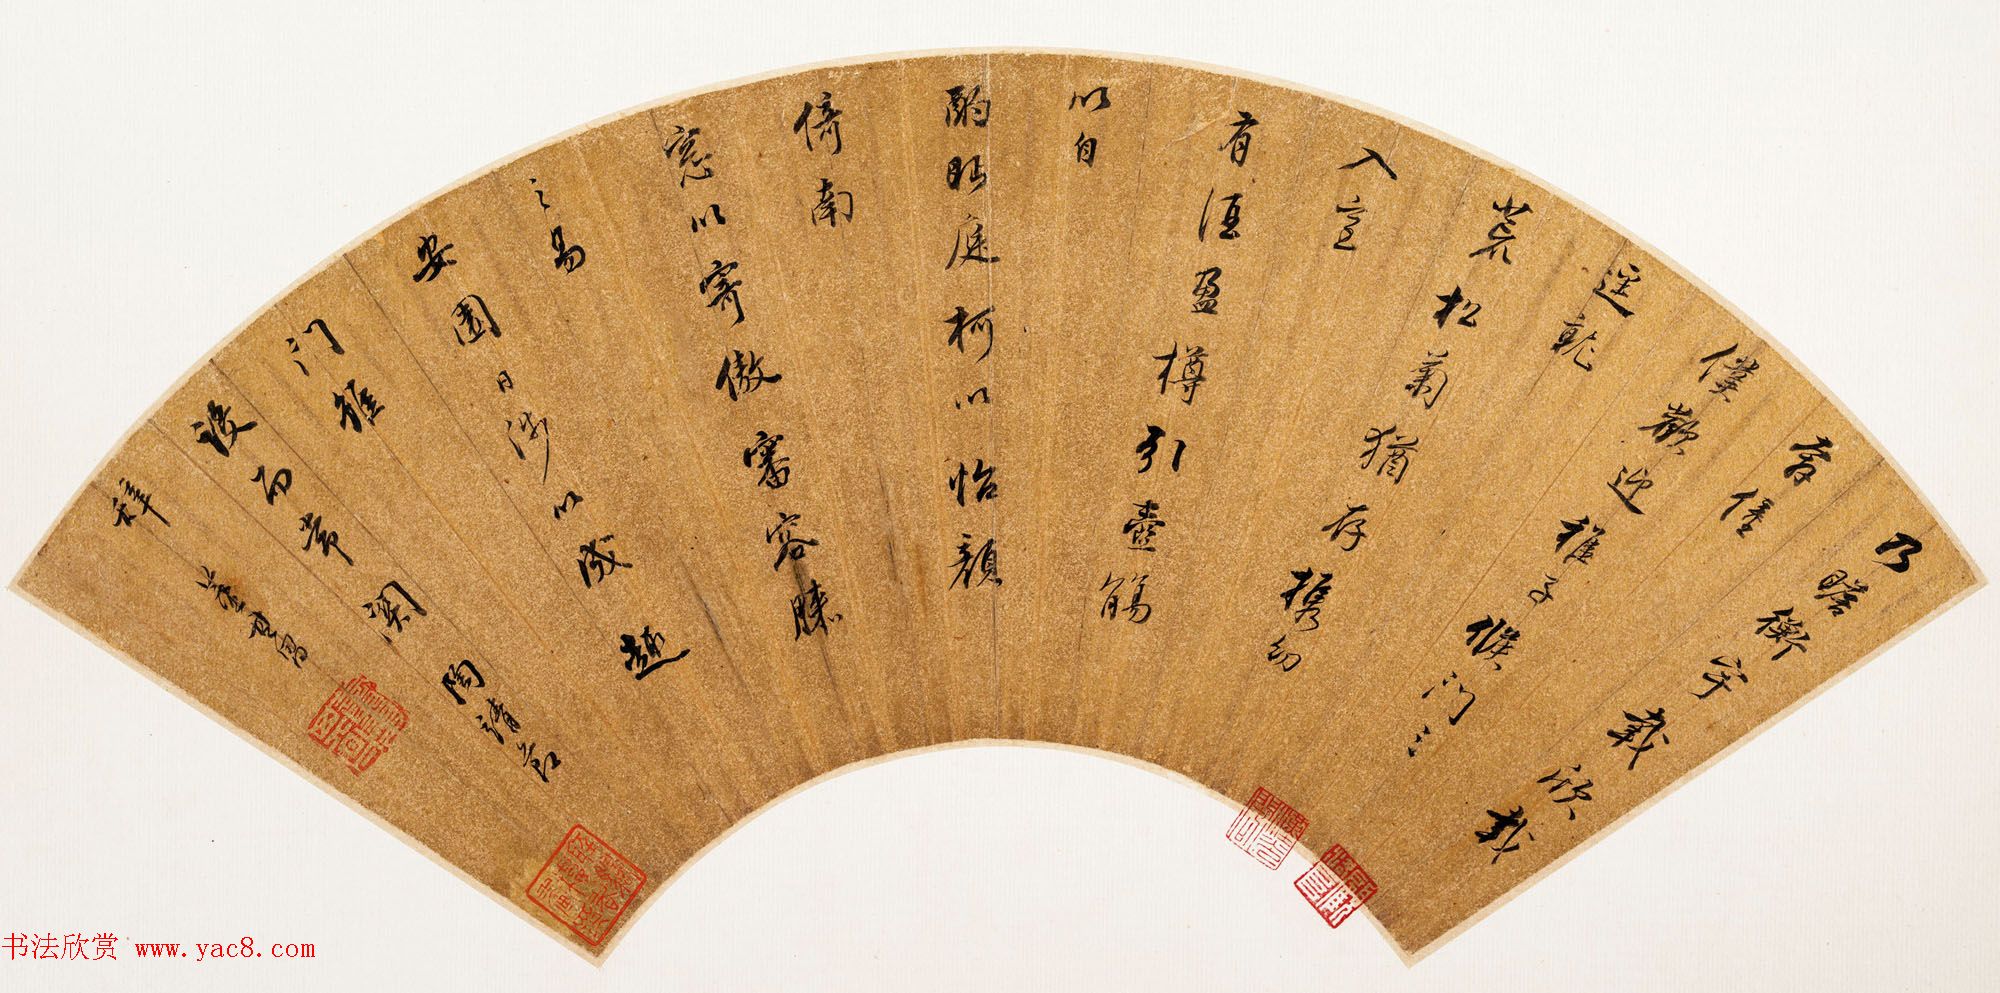 乃瞻衡宇載欣載
奔僮
僕歡迎稚子候門三
逕就
荒松菊猶存携幼
入室
有酒盈樽引壺觴
以自
酌眄庭柯以怡顏
倚南
窓以寄傲審容膝
之易
安園日涉以成趣
门雖
設而常関 陶靖節
辞 董其昌
书法欣赏 www.yac8.com